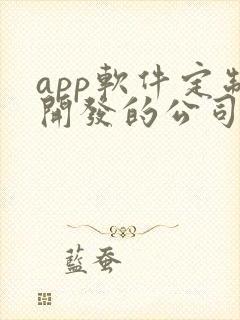 app軟件定制
開發的公司
藍蚕